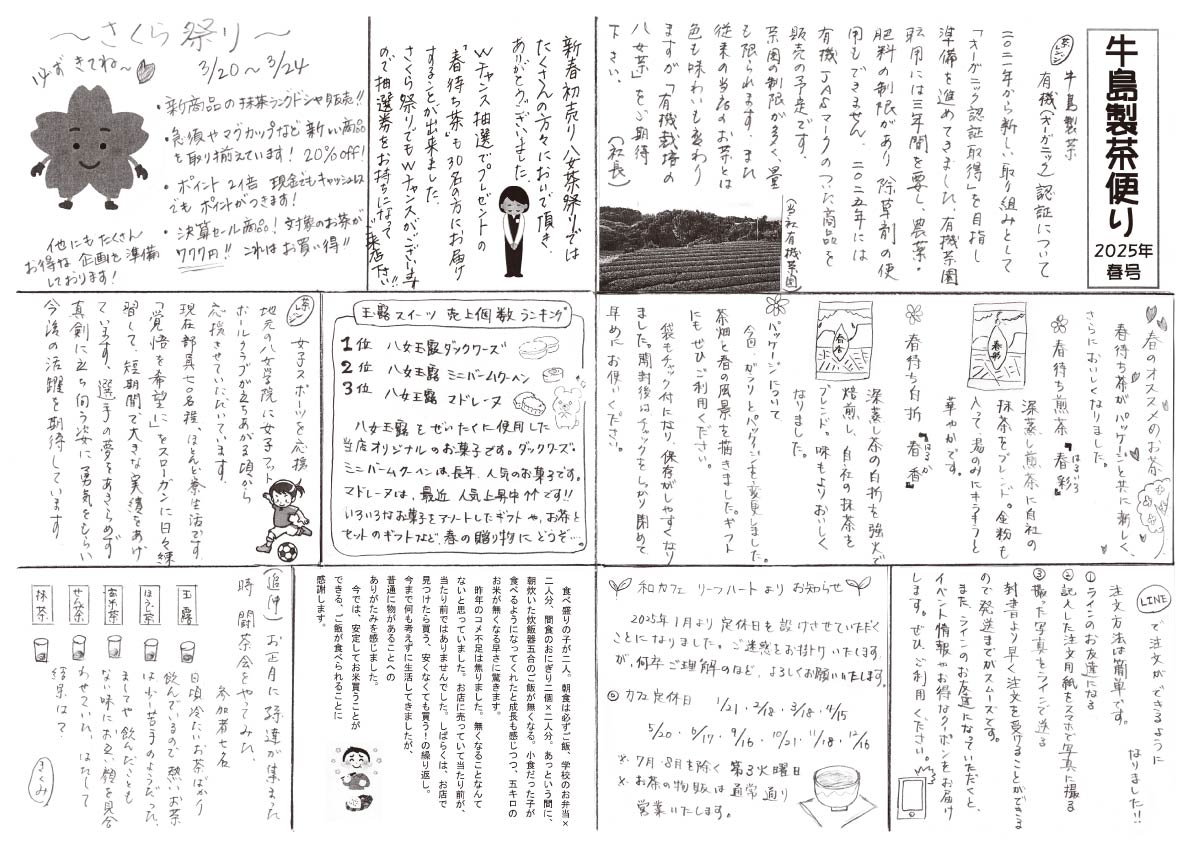 牛島製茶便り
2025年
春号
茶ンジン
牛島製茶
有機(オーガニック)認証について
二〇二一年から新しい取り組みとして
「オーガニック認証取得」を目指し
準備を進めてきました。有機茶園
取得には三年間を要し、農薬・
肥料の制限があり除草剤の使
用もできません。二〇二五年には
有機JASマークのついた商品を
販売の予定です。
茶園の制限が多く、量
も限られます。また
従来の当店のお茶とは
色も味わいも変わり
ますが「有機栽培の
八女茶」をご期待
下さい。
(社長)
(当社有機茶園)
新春初売り八女茶祭りでは
たくさんの方々においで頂き、
ありがとうございました。
Wチャンス抽選でプレゼントの
「春待ち茶」も30名の方にお届け
することが出来ました。
さくら祭りでもWチャンスがございます
ので抽選券をお持ちになって
ご来店下さい!!
～さくら祭り～
必ずきてね～
3/20～3/24
・新商品の抹茶ラングドシャ販売!!
・急須やマグカップなど新しい商品
を取り揃えています! 20%off!
・ポイント2倍 現金でもキャッシュレス
でもポイントがつきます!
・決算セール商品! 対象のお茶が
777円!! これはお買い得!!
他にもたくさん
お得な企画を準備
しております!
春のオススメのお茶
春待ち茶がパッケージと共に新しく、
さらにおいしくなりました。
春待ち煎茶『春彩』
はるいろ
深蒸し煎茶に自社の
抹茶をブレンド。金粉も
入って、湯のみにキラキラと
華やかです。
春彩
春待ち白折『春香』
はるか
深蒸し茶の白折を強火で
焙煎し、自社の抹茶を
ブレンド。味もよりおいしく
なりました。
春香
パッケージについて
今回、ガラリとパッケージを変更しました。
茶畑と春の風景を描きました。ギフト
にもぜひご利用ください。
袋もチャック付になり、保存がしやすくなり
ました。開封後はチャックをしっかり閉めて
早めにお使いください。
玉露スイーツ 売上個数ランキング
1位 八女玉露ダックワーズ
2位 八女玉露 ミニバームクーヘン
3位 八女玉露 マドレーヌ
八女玉露をぜいたくに使用した
当店オリジナルのお菓子です。ダックワーズ・
ミニバームクーヘンは長年、人気のお菓子です。
マドレーヌは、最近 人気上昇中↑↑です!!
いろいろなお菓子をアソートしたギフトや、お茶と
セットのギフトなど、春の贈り物にどうぞ…。
茶ンジン
女子スポーツを応援
地元の八女学院に女子フット
ボールクラブが立ちあがる頃から
応援させていただいています。
現在部員七〇名程、ほとんど寮生活です。
「覚悟を希望に」をスローガンに日々練
習して、短期間で大きな実績をあげ
ています。選手の夢をあきらめず
真剣に立ち向う姿に勇気をもらい
今後の活躍を期待しています
LINE
で注文ができるように
なりました!!
注文方法は簡単です。
①ラインのお友達になる
②記入した注文用紙をスマホで写真に撮る
③撮った写真をラインで送る
封書より早く注文を受けることができる
ので発送までがスムーズです。
また、ラインのお友達になっていただくと、
イベント情報やお得なクーポンをお届け
します。ぜひご利用ください。
和カフェ リーフハートより お知らせ
2025年1月より定休日を設けさせていただく
ことになりました。ご迷惑をお掛けいたします
が、何卒ご理解のほど、よろしくお願いいたします。
◎カフェ定休日 1/21・2/18・3/18・4/15
5/20・6/17・9/16・10/21・11/18・12/16
※7月・8月を除く 第3火曜日
※お茶の物販は通常通り
営業いたします。
食べ盛りの子が二人。朝食は必ずご飯、学校のお弁当×
二人分、間食のおにぎり二個×二人分。あっという間に、
朝炊いた炊飯器五合のご飯が無くなる。小食だった子が
食べるようになってくれたと成長も感じつつ、五キロの
お米が無くなる早さに驚きます。
昨年のコメ不足は焦りました。無くなることなんて
ないと思っていました。お店に売っていて当たり前が、
当たり前ではありませんでした。しばらくは、お店で
見つけたら買う、安くなくても買う!の繰り返し。
今まで何も考えずに生活してきましたが、
普通に物があることへの
ありがたみを感じました。
今では、安定してお米買うことが
できる、ご飯が食べられることに
感謝します。
(追伸) お正月に孫達が集まった
時 闘茶会をやってみた。
参加者七名
日頃冷たいお茶ばかり
飲んでいるので熱いお茶
は少し苦手のようだった。
ましてや飲んだことも
ない味にお互い顔を見合
わせていた。はたして
結果は?
きくみ
玉露
ほうじ茶
玄米茶
せん茶
抹茶